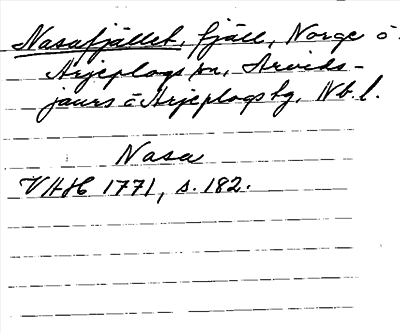 Nasafjället, fjäll, Norge o
Arjeplogs sn, Arvids-
jaurs o Arjeplogs tg, Nb. l.
Nasa
VHH 1771, s. 182.